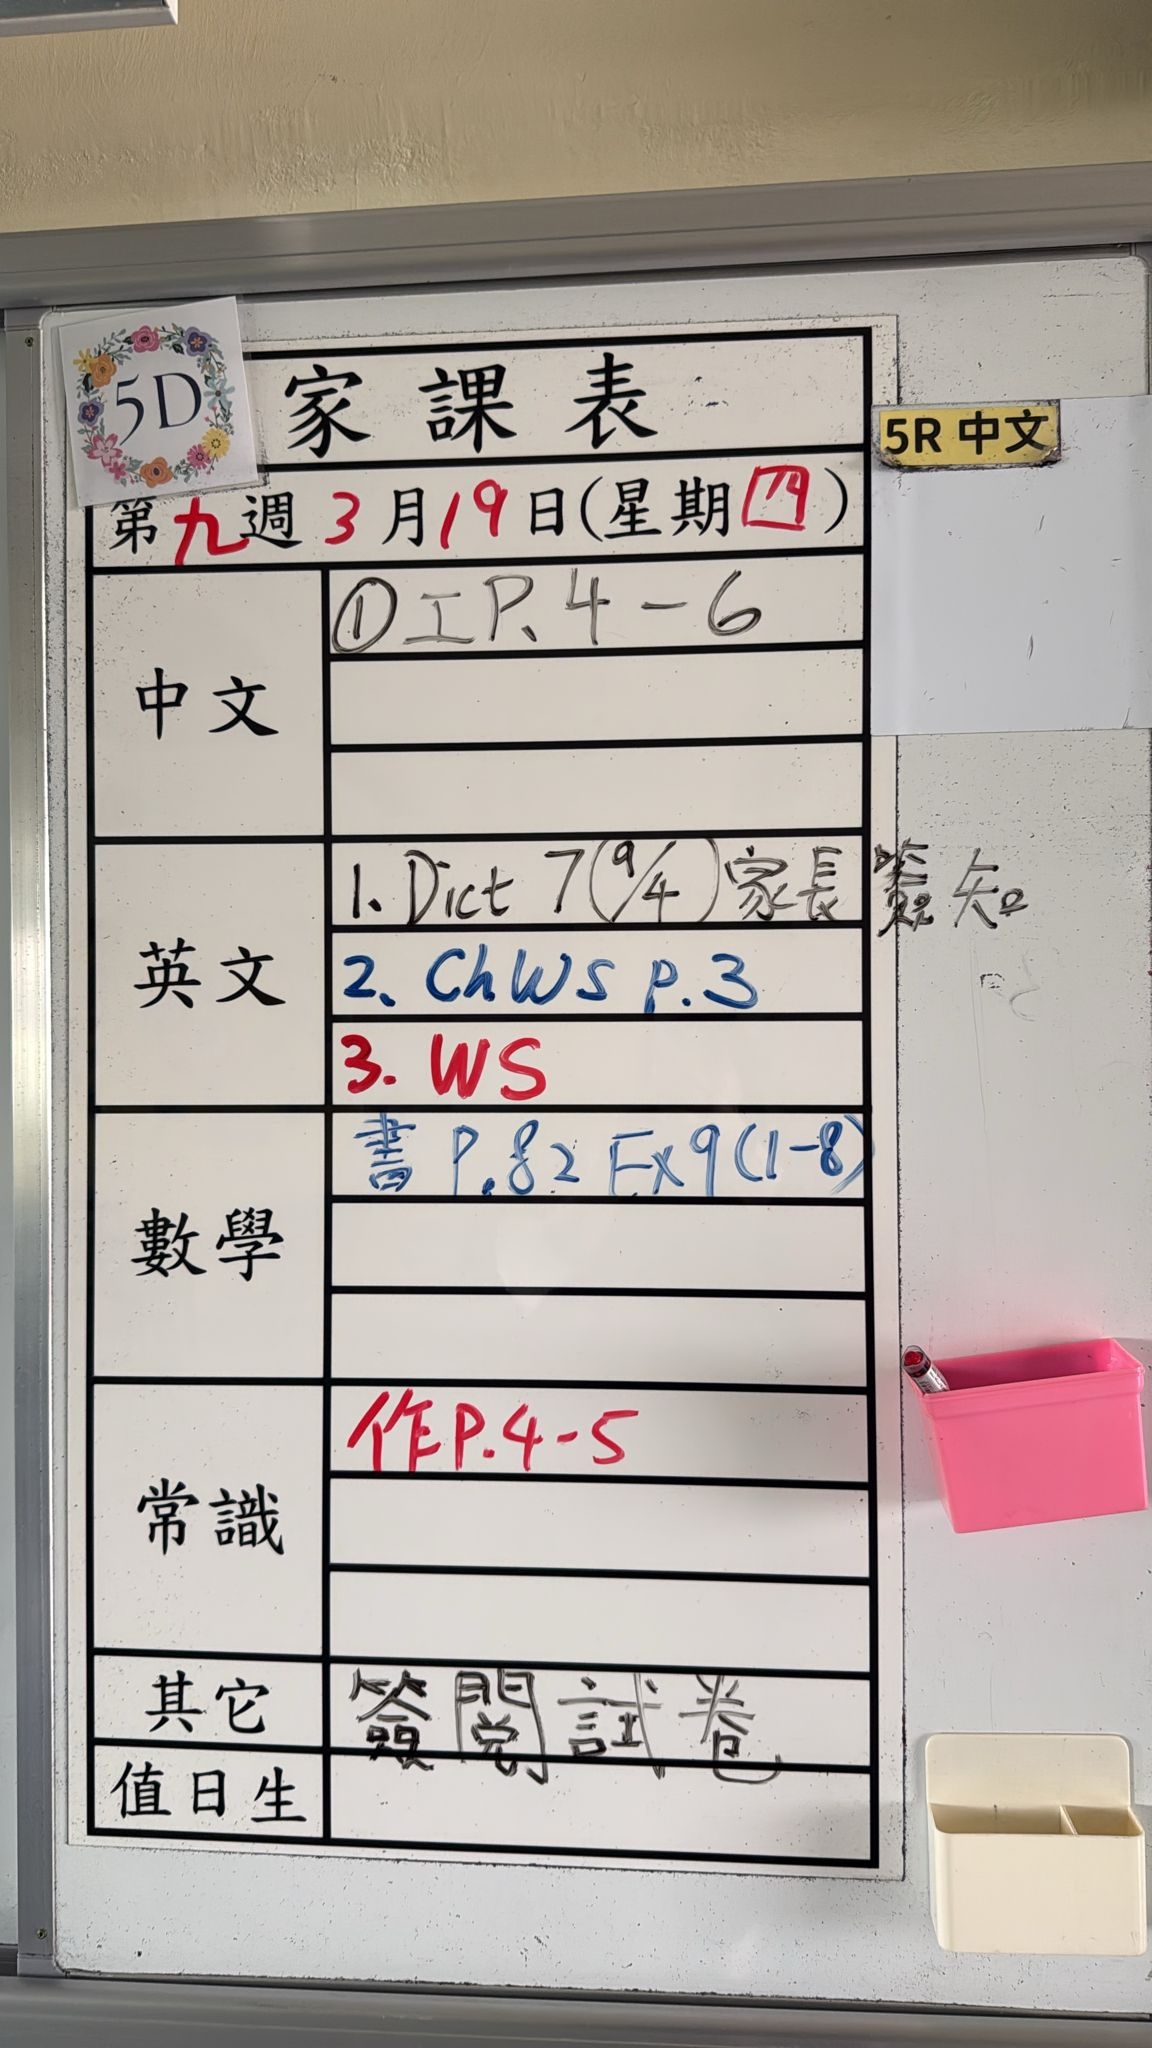 5D
家課表
第九週3月19日(星期四)
5R 中文
中文
①工P.4-6
英文
1. Dict 7(9/4)家長簽知
2. ChWS p.3
3. WS
數學
書 P.82 Ex9(1-8)
常識
作P.4-5
其它
簽閱試卷
值日生